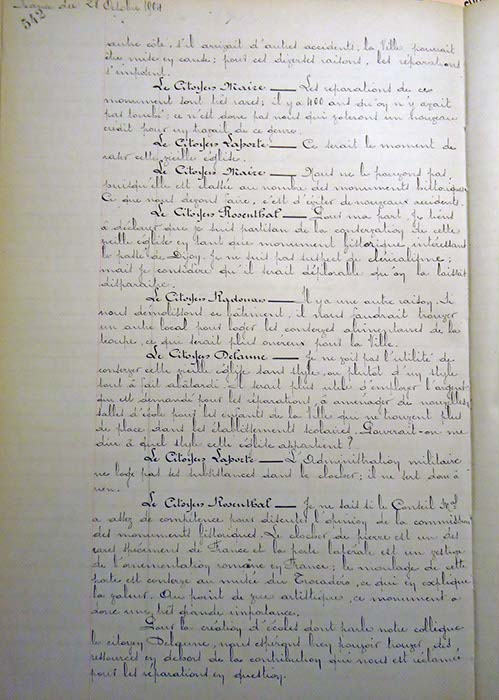 Séance du 21 Octobre 1904
542
autre côté, s'il arrivait d'autres accidents, la Ville pourrait
être mise en cause ; pour ces diverses raisons, les réparations
s'imposent.
Le Citoyen Maire — Les réparations de ce
monument sont très rares ; il y a 400 ans qu'on n'y avait
pas touché ; ce n'est donc pas nous qui voterons un nouveau
crédit pour un travail de ce genre.
Le Citoyen Laporte — Ce serait le moment de
raser cette vieille église.
Le Citoyen Maire — Nous ne le pouvons pas,
puisqu'elle est classée au nombre des monuments historiques.
Ce que nous devons faire, c'est d'éviter de nouveaux accidents.
Le Citoyen Rosenthal — Pour ma part, je tiens
à déclarer que je suis partisan de la conservation de cette
vieille église en tant que monument historique, intéressant
le passé de Dijon. Je ne suis pas suspect de cléricalisme ;
mais je considère qu'il serait déplorable qu'on la laissât
disparaître.
Le Citoyen — Il y a une autre raison. Si
nous démolissons ce bâtiment, il nous faudrait trouver
un autre local pour loger les conserves alimentaires de la
, ce qui serait plus onéreux pour la Ville.
Le Citoyen Delaune — Je ne vois pas l'utilité de
conserver cette vieille église sans style, ou plutôt d'un style
tout à fait abâtardi. Il serait plus utile d'employer l'argent
qui est demandé pour les réparations à aménager de nouvelles
salles d'école pour les enfants de la Ville qui ne trouvent plus
de place dans les établissements scolaires. Pourrait-on me
dire à quel style cette église appartient ?
Le Citoyen Laporte — L'Administration militaire
ne loge pas ses subsistances dans le clocher ; il ne sert donc à
rien.
Le Citoyen Rosenthal — Je ne sais si le Conseil Mal
a assez de compétence pour discuter l'opinion de la commission
des monuments historiques. Le clocher de pierre est un des
rares spécimens de France et la porte latérale est un vestige
de l'ornementation romane en France ; le moulage de cette
porte est conservé au musée du Trocadéro, ce qui en explique
la valeur. Au point de vue artistique, ce monument a
donc une très grande importance.
Pour la création d'écoles dont parle notre collègue
le citoyen Delaune, nous espérons bien pouvoir trouver des
ressources en dehors de la contribution qui nous est réclamée
pour les réparations en question.